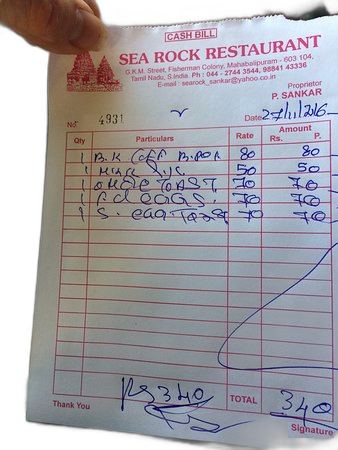 CASH BILL
SEA ROCK RESTAURANT
G.K.M. Street, Fisherman Colony, Mahabalipuram - 603 104.
Tamil Nadu, S.India. Ph : 044 - 2744 3544, 98841 43336
E-mail : searock_sankar@yahoo.co.in
Proprietor
P. SANKAR
No. 4931 Date 27/11/2016
Qty Particulars Rate Amount
Rs. P.
1 B.K COFF B.POT 80 80
1 50 50
1 TOAST 70 70
1 EGGS. 70 70
1 S. EGG TOAST 70 70
Rs 340 TOTAL 340
Thank You Signature